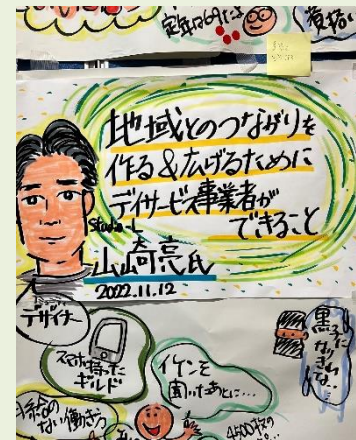 定年は69才
地域とのつながりを
作る&広げるために
デイサービス事業者が
できること
studio-L
山崎亮氏
2022.11.12
デザイナー
スマホ持った
ギルド
イケンを
聞いたあとに…
黒子に
なりきれな…
ない働き方